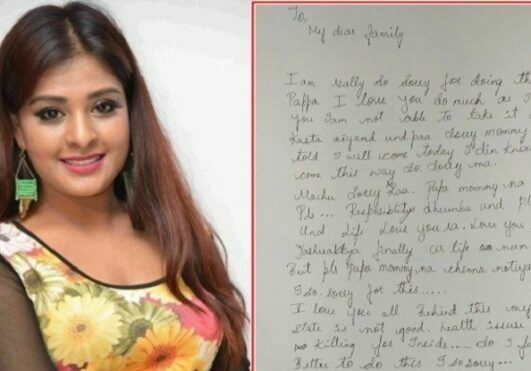 To,
My dear family
I am really so sorry for doing th
Pappa I love you so much as I
you I am not able to take it
Kasta aiyand und paa sorry mommy
told I will come today I din know
come this way so sorry ma.
Machu sorry Paa.. Papa mommy na
Pls... Responsiblity dhumba und pl
Und Life Love you sa. Love you
finally life nun
But pls Papa mommy na chenna
I so sorry for this.....
I love you all Behind this my
state is not good. health issues
killing for Inside..... so I f
Better to do this I so sorry...